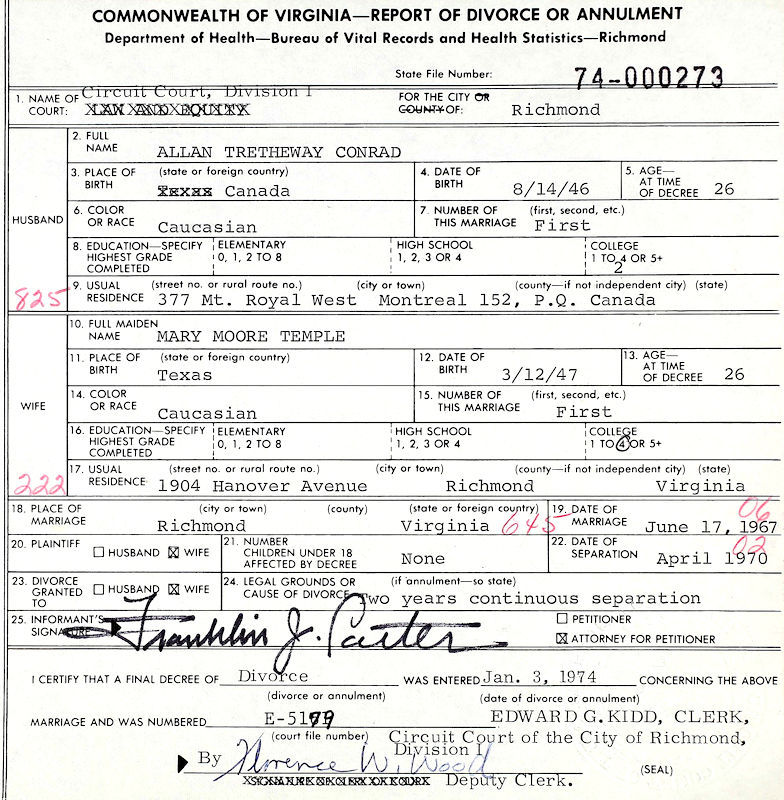 COMMONWEALTH OF VIRGINIA—REPORT OF DIVORCE OR ANNULMENT
Department of Health—Bureau of Vital Records and Health Statistics—Richmond
State File Number: 74-000273
1. NAME OF COURT: Circuit Court, Division I LAW AND EQUITY FOR THE CITY OR COUNTY OF: Richmond
HUSBAND
2. FULL NAME ALLAN TRETHEWAY CONRAD
3. PLACE OF BIRTH (state or foreign country) Texas Canada 4. DATE OF BIRTH 8/14/46 5. AGE—AT TIME OF DECREE 26
6. COLOR OR RACE Caucasian 7. NUMBER OF THIS MARRIAGE (first, second, etc.) First
8. EDUCATION—SPECIFY HIGHEST GRADE COMPLETED ELEMENTARY 0, 1, 2 TO 8 HIGH SCHOOL 1, 2, 3 OR 4 COLLEGE 1 TO 4 OR 5+ 2
825
9. USUAL RESIDENCE (street no. or rural route no.) (city or town) (county—if not independent city) (state)
377 Mt. Royal West Montreal 152, P.Q. Canada
WIFE
10. FULL MAIDEN NAME MARY MOORE TEMPLE
11. PLACE OF BIRTH (state or foreign country) Texas 12. DATE OF BIRTH 3/12/47 13. AGE—AT TIME OF DECREE 26
14. COLOR OR RACE Caucasian 15. NUMBER OF THIS MARRIAGE (first, second, etc.) First
16. EDUCATION—SPECIFY HIGHEST GRADE COMPLETED ELEMENTARY 0, 1, 2 TO 8 HIGH SCHOOL 1, 2, 3 OR 4 COLLEGE 1 TO 4 OR 5+
222
17. USUAL RESIDENCE (street no. or rural route no.) (city or town) (county—if not independent city) (state)
1904 Hanover Avenue Richmond Virginia
18. PLACE OF MARRIAGE (city or town) (county) (state or foreign country) Richmond Virginia 645 19. DATE OF MARRIAGE June 17, 1967 06
20. PLAINTIFF ☐ HUSBAND ☒ WIFE 21. NUMBER CHILDREN UNDER 18 AFFECTED BY DECREE None 22. DATE OF SEPARATION April 1970 02
23. DIVORCE GRANTED TO ☐ HUSBAND ☒ WIFE 24. LEGAL GROUNDS OR CAUSE OF DIVORCE (if annulment—so state) Two years continuous separation
25. INFORMANT'S SIGNATURE Franklin J. Carter ☐ PETITIONER
☒ ATTORNEY FOR PETITIONER
I CERTIFY THAT A FINAL DECREE OF Divorce WAS ENTERED Jan. 3, 1974 CONCERNING THE ABOVE
(divorce or annulment) (date of divorce or annulment)
MARRIAGE AND WAS NUMBERED E-5179 EDWARD G. KIDD, CLERK,
(court file number) Circuit Court of the City of Richmond,
Division I
By Florence W. Wood (SEAL)
Deputy Clerk.